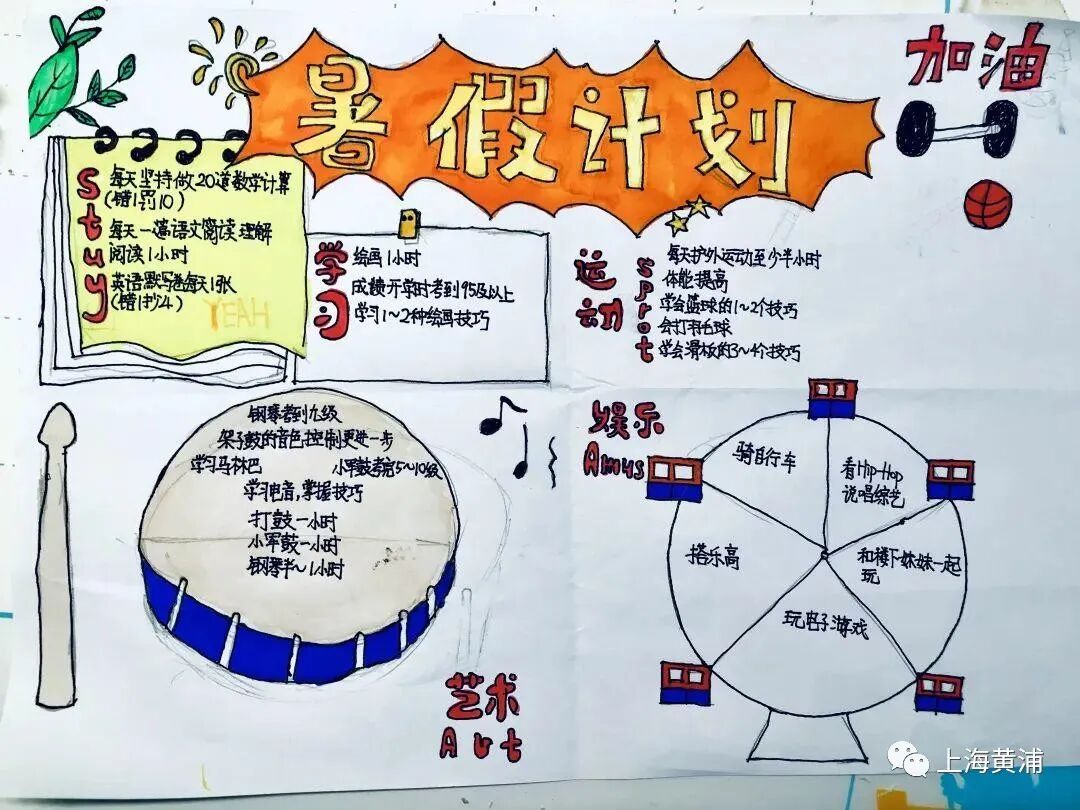 暑假计划
加油
Study
每天坚持做20道数学计算
(错1罚10)
每天一篇语文阅读理解
阅读1小时
英语默写卷每天1张
(错1抄4)
YEAH
学习
绘画1小时
成绩开学时考到95及以上
学习1~2种绘画技巧
运动
Sprot
每天护外运动至少半小时
体能提高
学会篮球的1~2个技巧
会打羽毛球
学会滑板的3~4个技巧
钢琴考到九级
架子鼓的音色,控制更进一步
学习马林巴
小军鼓考完5~10级
学习电音,掌握技巧
打鼓一小时
小军鼓一小时
钢琴半~1小时
艺术
Aut
娱乐
Amus
骑自行车
看Hip-Hop
说唱综艺
搭乐高
和楼下妹妹一起
玩
玩电子游戏
上海黄浦